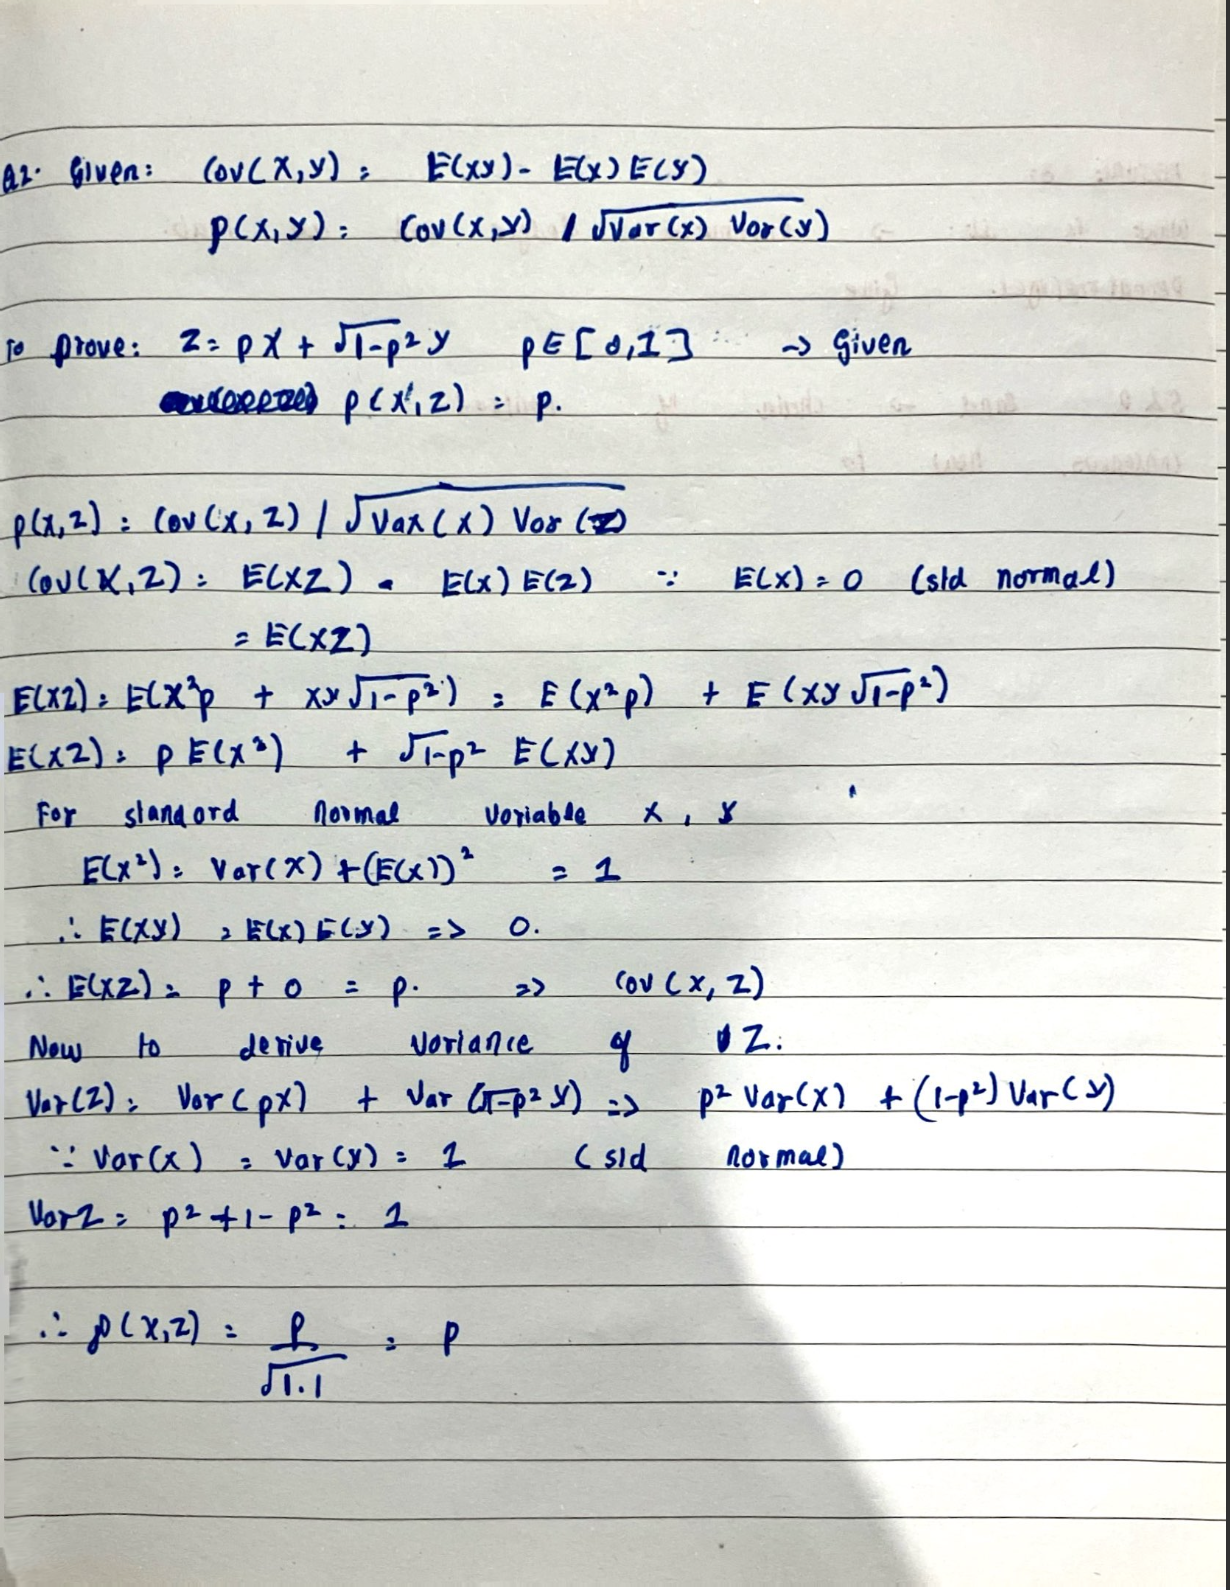 Q2. Given: Cov(X,Y) = E(XY) - E(X) E(Y)
ρ(X,Y) = Cov(X,Y) / √Var(X) Var(Y)
To prove: Z = ρX + √1-ρ² Y ρ ∈ [0,1] → Given
ρ(X,Z) = ρ.
ρ(X,Z) = Cov(X,Z) / √Var(X) Var(Z)
Cov(X,Z) = E(XZ) - E(X) E(Z) ∵ E(X) = 0 (std normal)
= E(XZ)
E(XZ) = E(X²ρ + XY√1-ρ²) = E(X²ρ) + E(XY√1-ρ²)
E(XZ) = ρ E(X²) + √1-ρ² E(XY)
For standard normal variable X, Y
E(X²) = Var(X) + (E(X))² = 1
∴ E(XY) = E(X) E(Y) => 0.
∴ E(XZ) = ρ + 0 = ρ. => Cov(X,Z)
Now to derive variance of Z.
Var(Z) = Var(ρX) + Var(√1-ρ² Y) => ρ² Var(X) + (1-ρ²) Var(Y)
∵ Var(X) = Var(Y) = 1 (std normal)
Var Z = ρ² + 1 - ρ² = 1
∴ ρ(X,Z) = ρ / √1.1 = ρ